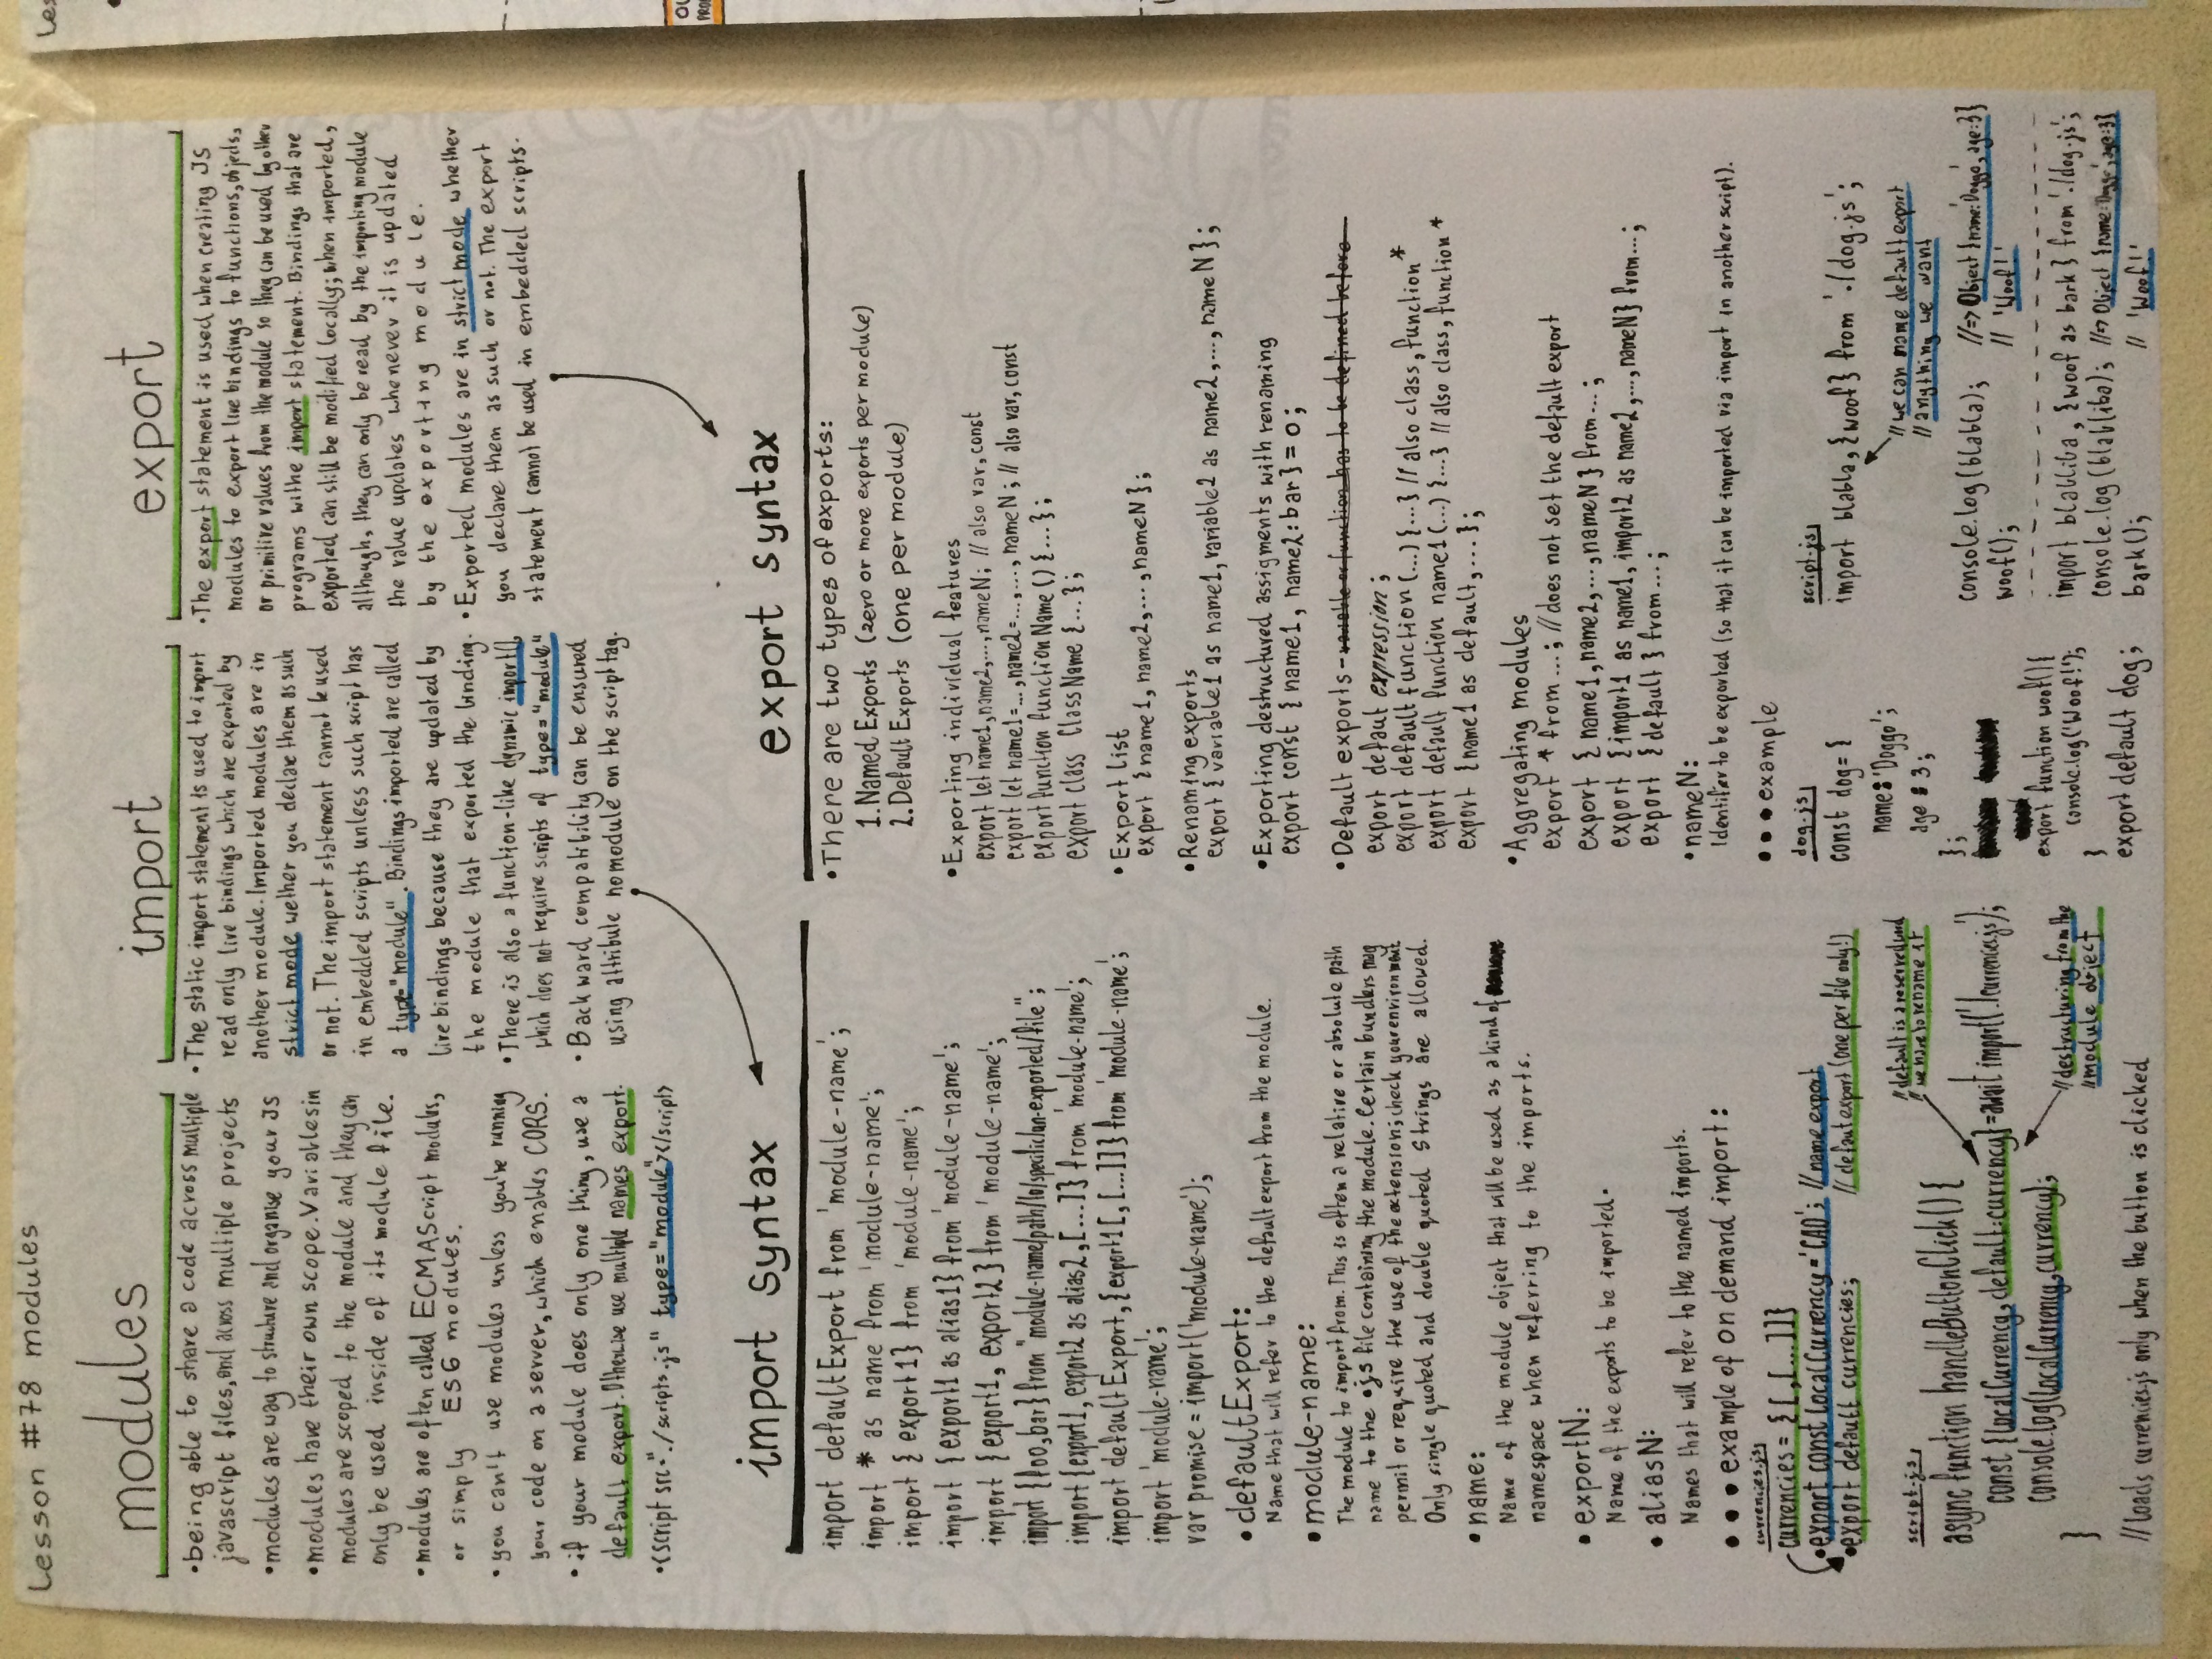 Lesson #78 modules
modules
•being able to share a code across multiple
javascript files, and across multiple projects
•modules are way to structure and organise your JS
•modules have their own scope. Variables in
modules are scoped to the module and they can
only be used inside of its module file.
•modules are often called ECMAScript modules,
or simply ES6 modules.
•you can't use modules unless you're running
your code on a server, which enables CORS.
•if your module does only one thing, use a
default export. Otherwise use multiple names export.
•<script src="./scripts.js" type="module"></script>
import
•The static import statement is used to import
read only live bindings which are exported by
another module. Imported modules are in
strict mode wether you declare them as such
or not. The import statement cannot be used
in embedded scripts unless such script has
a type="module". Bindings imported are called
live bindings because they are updated by
the module that exported the binding.
•There is also a function-like dynamic import(),
which does not require scripts of type="module"
•Backward compatibility can be ensured
using attribute nomodule on the script tag.
export
•The export statement is used when creating JS
modules to export live bindings to functions, objects,
or primitive values from the module so they can be used by other
programs withe import statement. Bindings that are
exported can still be modified locally; when imported,
although, they can only be read by the importing module
the value updates whenever it is updated
by the exporting module.
•Exported modules are in strict mode whether
you declare them as such or not. The export
statement cannot be used in embedded scripts.
import syntax
import defaultExport from 'module-name';
import * as name from 'module-name';
import { export1} from 'module-name';
import {export1 as alias1} from 'module-name';
import {export1, export2} from 'module-name';
import {foo,bar} from "module-name/path/to/specific/un-exported/file";
import {export1, export2 as alias2,[...]} from 'module-name';
import defaultExport, {export1[,[...]]} from 'module-name';
import 'module-name';
var promise = import('module-name');
•defaultExport:
Name that will refer to the default export from the module.
•module-name:
The module to import from. This is often a relative or absolute path
name to the .js file containing the module. Certain bundlers may
permit or require the use of the extension; check your environment.
Only single quoted and double quoted Strings are allowed.
•name:
Name of the module object that will be used as a kind of
namespace when referring to the imports.
•exportN:
Name of the exports to be imported.
•aliasN:
Names that will refer to the named imports.
•••example of on demand import:
currencies.js
currencies = {[,[...]]}
•export const localCurrency='CAD'; //name export
•export default currencies; // defaut export (one per file only!)
script.js
//default is a reserved word
// we have to rename it
async function handleButtonClick() {
const {localCurrency, default:currency}=await import('./currencies.js');
console.log(localCurrency,currency);
}
//destructuring from the
//module object
//Loads currencies.js only when the button is clicked
export syntax
•There are two types of exports:
1.Named Exports (zero or more exports per module)
2.Default Exports (one per module)
•Exporting individual features
export let name1,name2,...,nameN; // also var, const
export let name1=...,name2=...,...,nameN; // also var, const
export function functionName () {...};
export class ClassName {...};
•Export list
export {name1, name2,...,nameN};
•Renaming exports
export {variable1 as name1, variable2 as name2,..., nameN};
•Exporting destructured assigments with renaming
export const {name1, name2:bar} = o;
•Default exports - variable or function has to be defined before
export defaut expression;
export default function (...) {...} // also class, function*
export default function name1 (...) {...} // also class, function*
export {name1 as default,...};
•Aggregating modules
export * from ...; // does not set the default export
export {name1,name2,...,nameN} from...;
export {import1 as name1, import2 as name2,...,nameN} from...;
export {default} from...;
•nameN:
Identifer to be exported (so that it can be imported via import in another script).
•••example
dog.js
const dog= {
name: 'Doggo';
age : 3;
};
export function woof(){
console.log('Woof!');
}
export default dog;
script.js
import blabla, {woof} from './dog.js';
// we can name default export
// anything we want
console.log(blabla); //=> Object {name:'Doggo', age:3}
woof(); // 'Woof!'
import blabliba, {woof as bark} from './dog.js';
console.log(blabliba); //=> Object {name:'Doggo', age:3}
bark(); // 'Woof!'